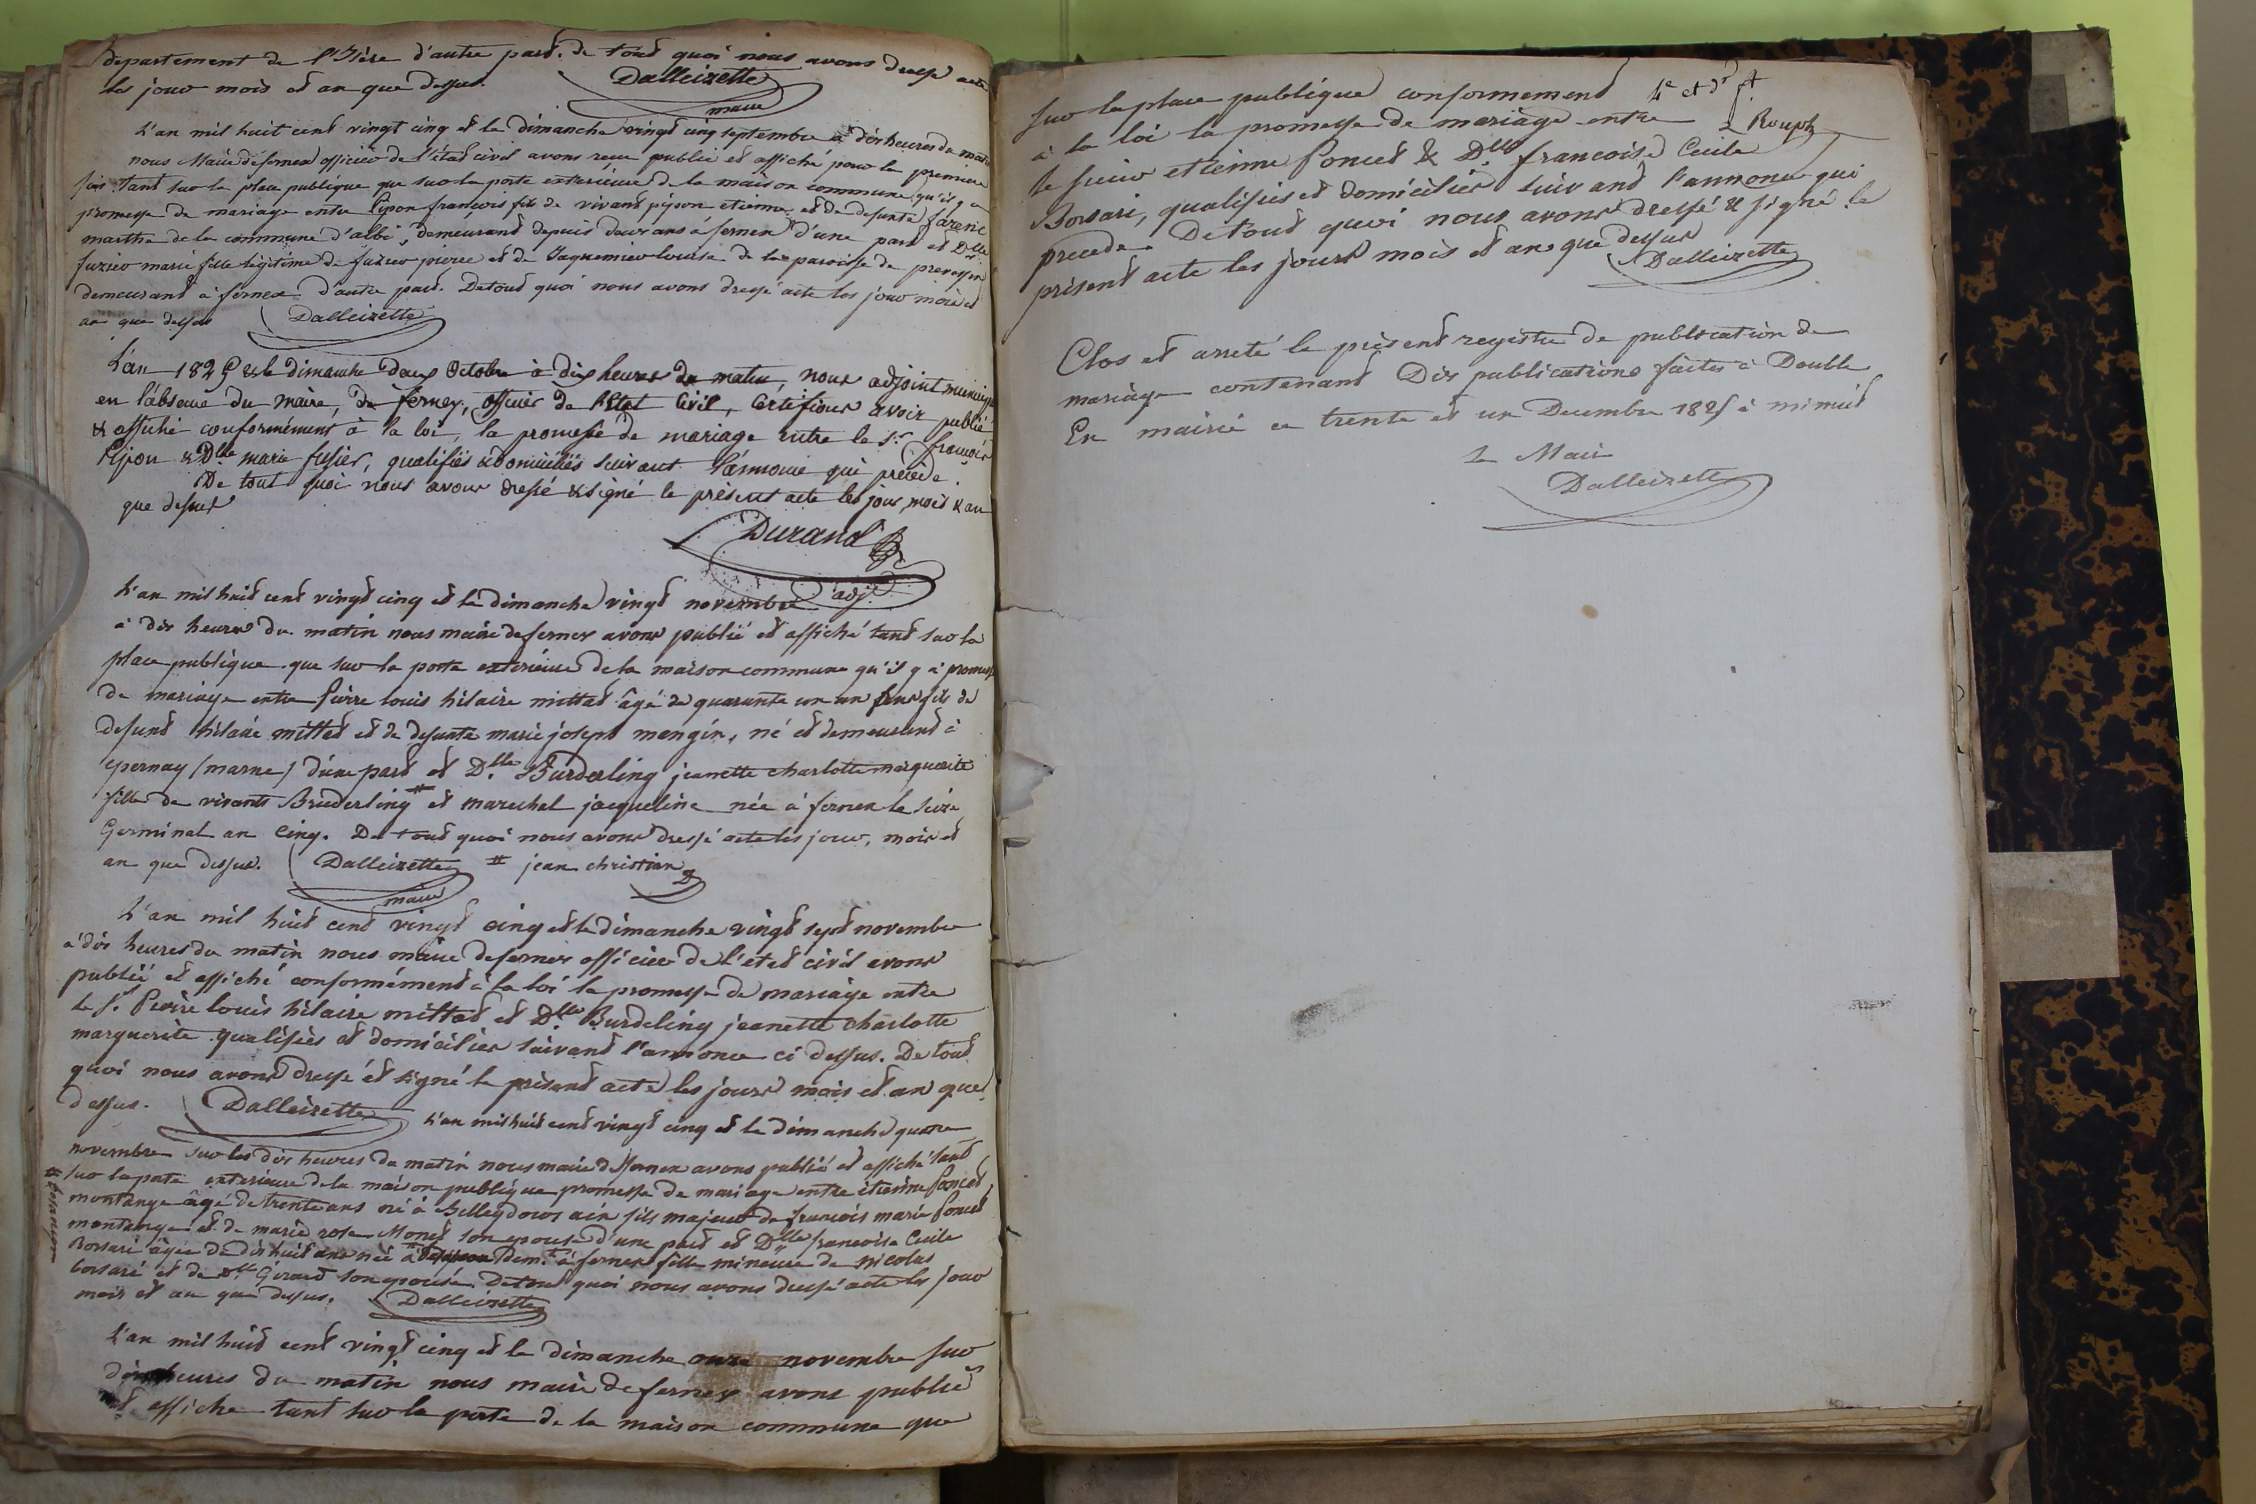 departement de l'Isère d'autre part. de tout quoi nous avons dressé acte
les jour mois et an que dessus. Dalleizette
maire
L'an mil huit cent vingt cinq et le dimanche vingt cinq septembre à dix heures du matin
nous Maire de fernex officier de l'état civil avons publié et affiché pour la premiere
fois tant sur la place publique que sur la porte exterieure de la maison commune qu'il y a
promesse de mariage entre Pijon françois fils de vivant pijon etienne et de defunte
marthe de la commune d'albi, demeurant depuis deux ans à fernex d'une part et Dlle
fuzier marie fille légitime de fuzier pierre et de Jaquemier louise de la paroisse de
demeurant à fernex d'autre part. De tout quoi nous avons dressé acte les jour mois et
an que dessus Dalleizette
L'an 1825 & le dimanche deux Octobre à dix heures du matin, nous adjoint municipal
en l'absence du maire, de ferney, officier de l'Etat Civil, Certifions avoir publié
& affiché conformément à la loi, la promesse de mariage entre le Sr. françois
Pijon & Dlle marie fusier, qualifiés & domiciliés suivant l'annonce qui précède.
De tout quoi nous avons dressé & signé le présent acte les jour, mois & an
que dessus
Durand
adjt
L'an mil huit cent vingt cinq et le dimanche vingt novembre
à dix heures du matin nous maire de fernex avons publié et affiché tant sur la
place publique que sur la porte exterieure de la maison commune qu'il y a promesse
de mariage entre Pierre louis hilaire mittat âgé de quarante un an fils de
defunt hilaire mittat et de defunte marie joseph mangin, né et demeurant à
epernay (marne) d'une part et Dlle Burderling jeanette charlotte marguerite
fille de vivants Bruderling # et marechal jacqueline née à fernex le seize
Germinal an Cinq. De tout quoi nous avons dressé acte les jour, mois et
an que dessus. Dalleizette # jean christian
maire
L'an mil huit cent vingt cinq et le dimanche vingt sept novembre
à dix heures du matin nous maire de fernex officier de l'état civil avons
publié et affiché conformément à la loi la promesse de mariage entre
le Sr. Pierre louis hilaire mittat et Dlle Burdeling jeanette charlotte
marguerite qualifiés et domiciliés suivant l'annonce ci dessus. De tout
quoi nous avons dressé et signé le présent acte les jours mois et an que
dessus. Dalleizette L'an mil huit cent vingt cinq et le dimanche quatre
novembre sur les dix heures du matin nous maire de fernex avons publié et affiché tant
sur la porte exterieure de la maison publique promesse de mariage entre étienne Poncet
montange âgé de trente ans né à Billeydoux ain fils majeur de francois marie Poncet
montange et de marie rose Monet son epouse d'une part et Dlle francoise Cecile
Borsari âgée de dix huit ans née à # demte à fernex fille mineure de nicolas
borsari et de Dlle Girard son epouse. De tout quoi nous avons dressé acte les jour
mois et an que dessus. Dalleizette
# besancon
L'an mil huit cent vingt cinq et le dimanche onze novembre sur
dix heures du matin nous maire de ferney avons publié
et affiche tant sur la porte de la maison commune que
sur la place publique conformement
à la loi la promesse de mariage entre
le sieur etienne Poncet & Dlle francoise Cecile
Borsari, qualifiés et domiciliés suivant l'annonce qui
precede. De tout quoi nous avons dressé & signé le
présent acte les jours mois et an que dessus
Dalleizette
Rouph
Clos et arreté le présent registre de publication de
mariage contenant Dix publications faites à Double
En mairie ce trente et un Decembre 1825 à minuit
Le Maire
Dalleizette